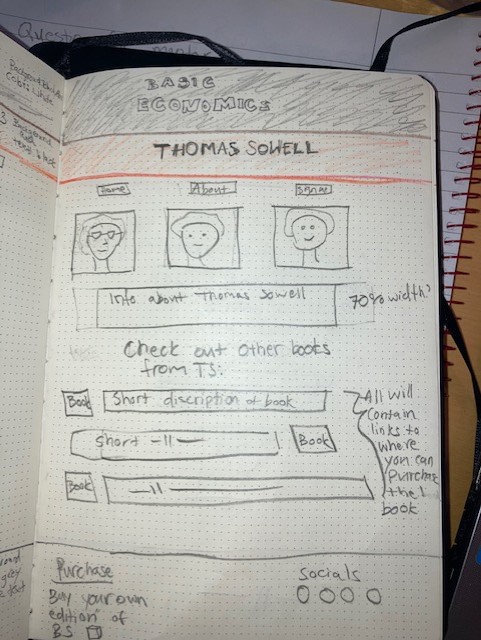 Question
BASIC
ECONOMICS
THOMAS SOWELL
Home
About
Info about Thomas Sowell
70% width?
Check out other books
from TS:
Book
Short discription of book
Short -11-
Book
Book
-11-
All will
contain
links to
where
you can
Purchase
the
book
Purchase
Buy your own
edition of
BS
socials